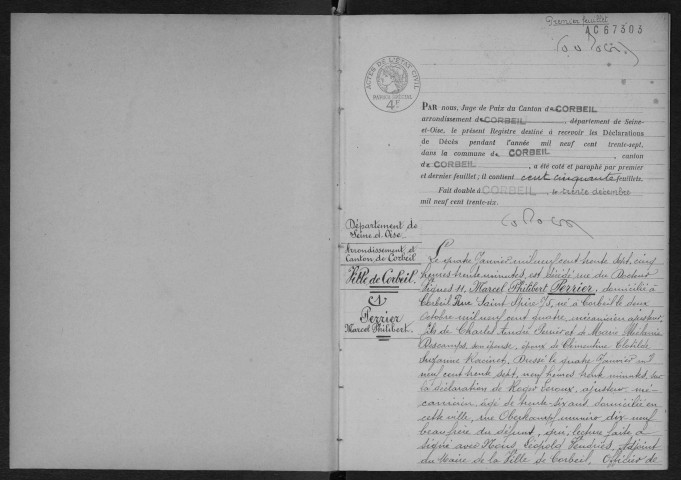 Premier feuillet
AC67303
ACTES DE L'ÉTAT CIVIL
4F
PAR nous, Juge de Paix du Canton de CORBEIL
arrondissement de CORBEIL, département de Seine-
et-Oise, le présent Registre destiné à recevoir les Déclarations
de Décès pendant l'année mil neuf cent trente-sept,
dans la commune de CORBEIL, canton
de CORBEIL, a été coté et paraphé par premier
et dernier feuillet; il contient cent cinquante feuillets.
Fait double à CORBEIL, le treize décembre
mil neuf cent trente-six.
Département de
Seine-et-Oise.
Arrondissement et
Canton de Corbeil
Ville de Corbeil.
Perrier
Marcel Philibert.
Le quatre Janvier mil neuf cent trente sept, cinq
heures trente minutes, est décédé rue du Docteur
Vignes 11, Marcel Philibert Perrier, domicilié à
Corbeil Rue Saint Spire 75, né à Corbeil le deux
octobre mil neuf cent quatre, mécanicien ajusteur,
fils de Charles André Perrier et de Marie Mélanie
Descamps, son épouse, époux de Clémentine Clotilde
Suzanne Racinet. Dressé le quatre Janvier mil
neuf cent trente sept, neuf heures trente minutes, sur
la déclaration de Roger Leroux, ajusteur mé-
canicien âgé de trente-six ans domicilié en
cette ville, rue Oberkampf numéro dix neuf
beau frère du défunt, qui, lecture faite a
signé avec Nous, Léopold, Adjoint
du Maire de la Ville de Corbeil, Officier de